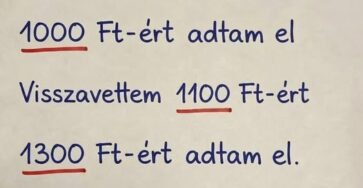 1000 Ft-ért adtam el
Visszavettem 1100 Ft-ért
1300 Ft-ért adtam el.